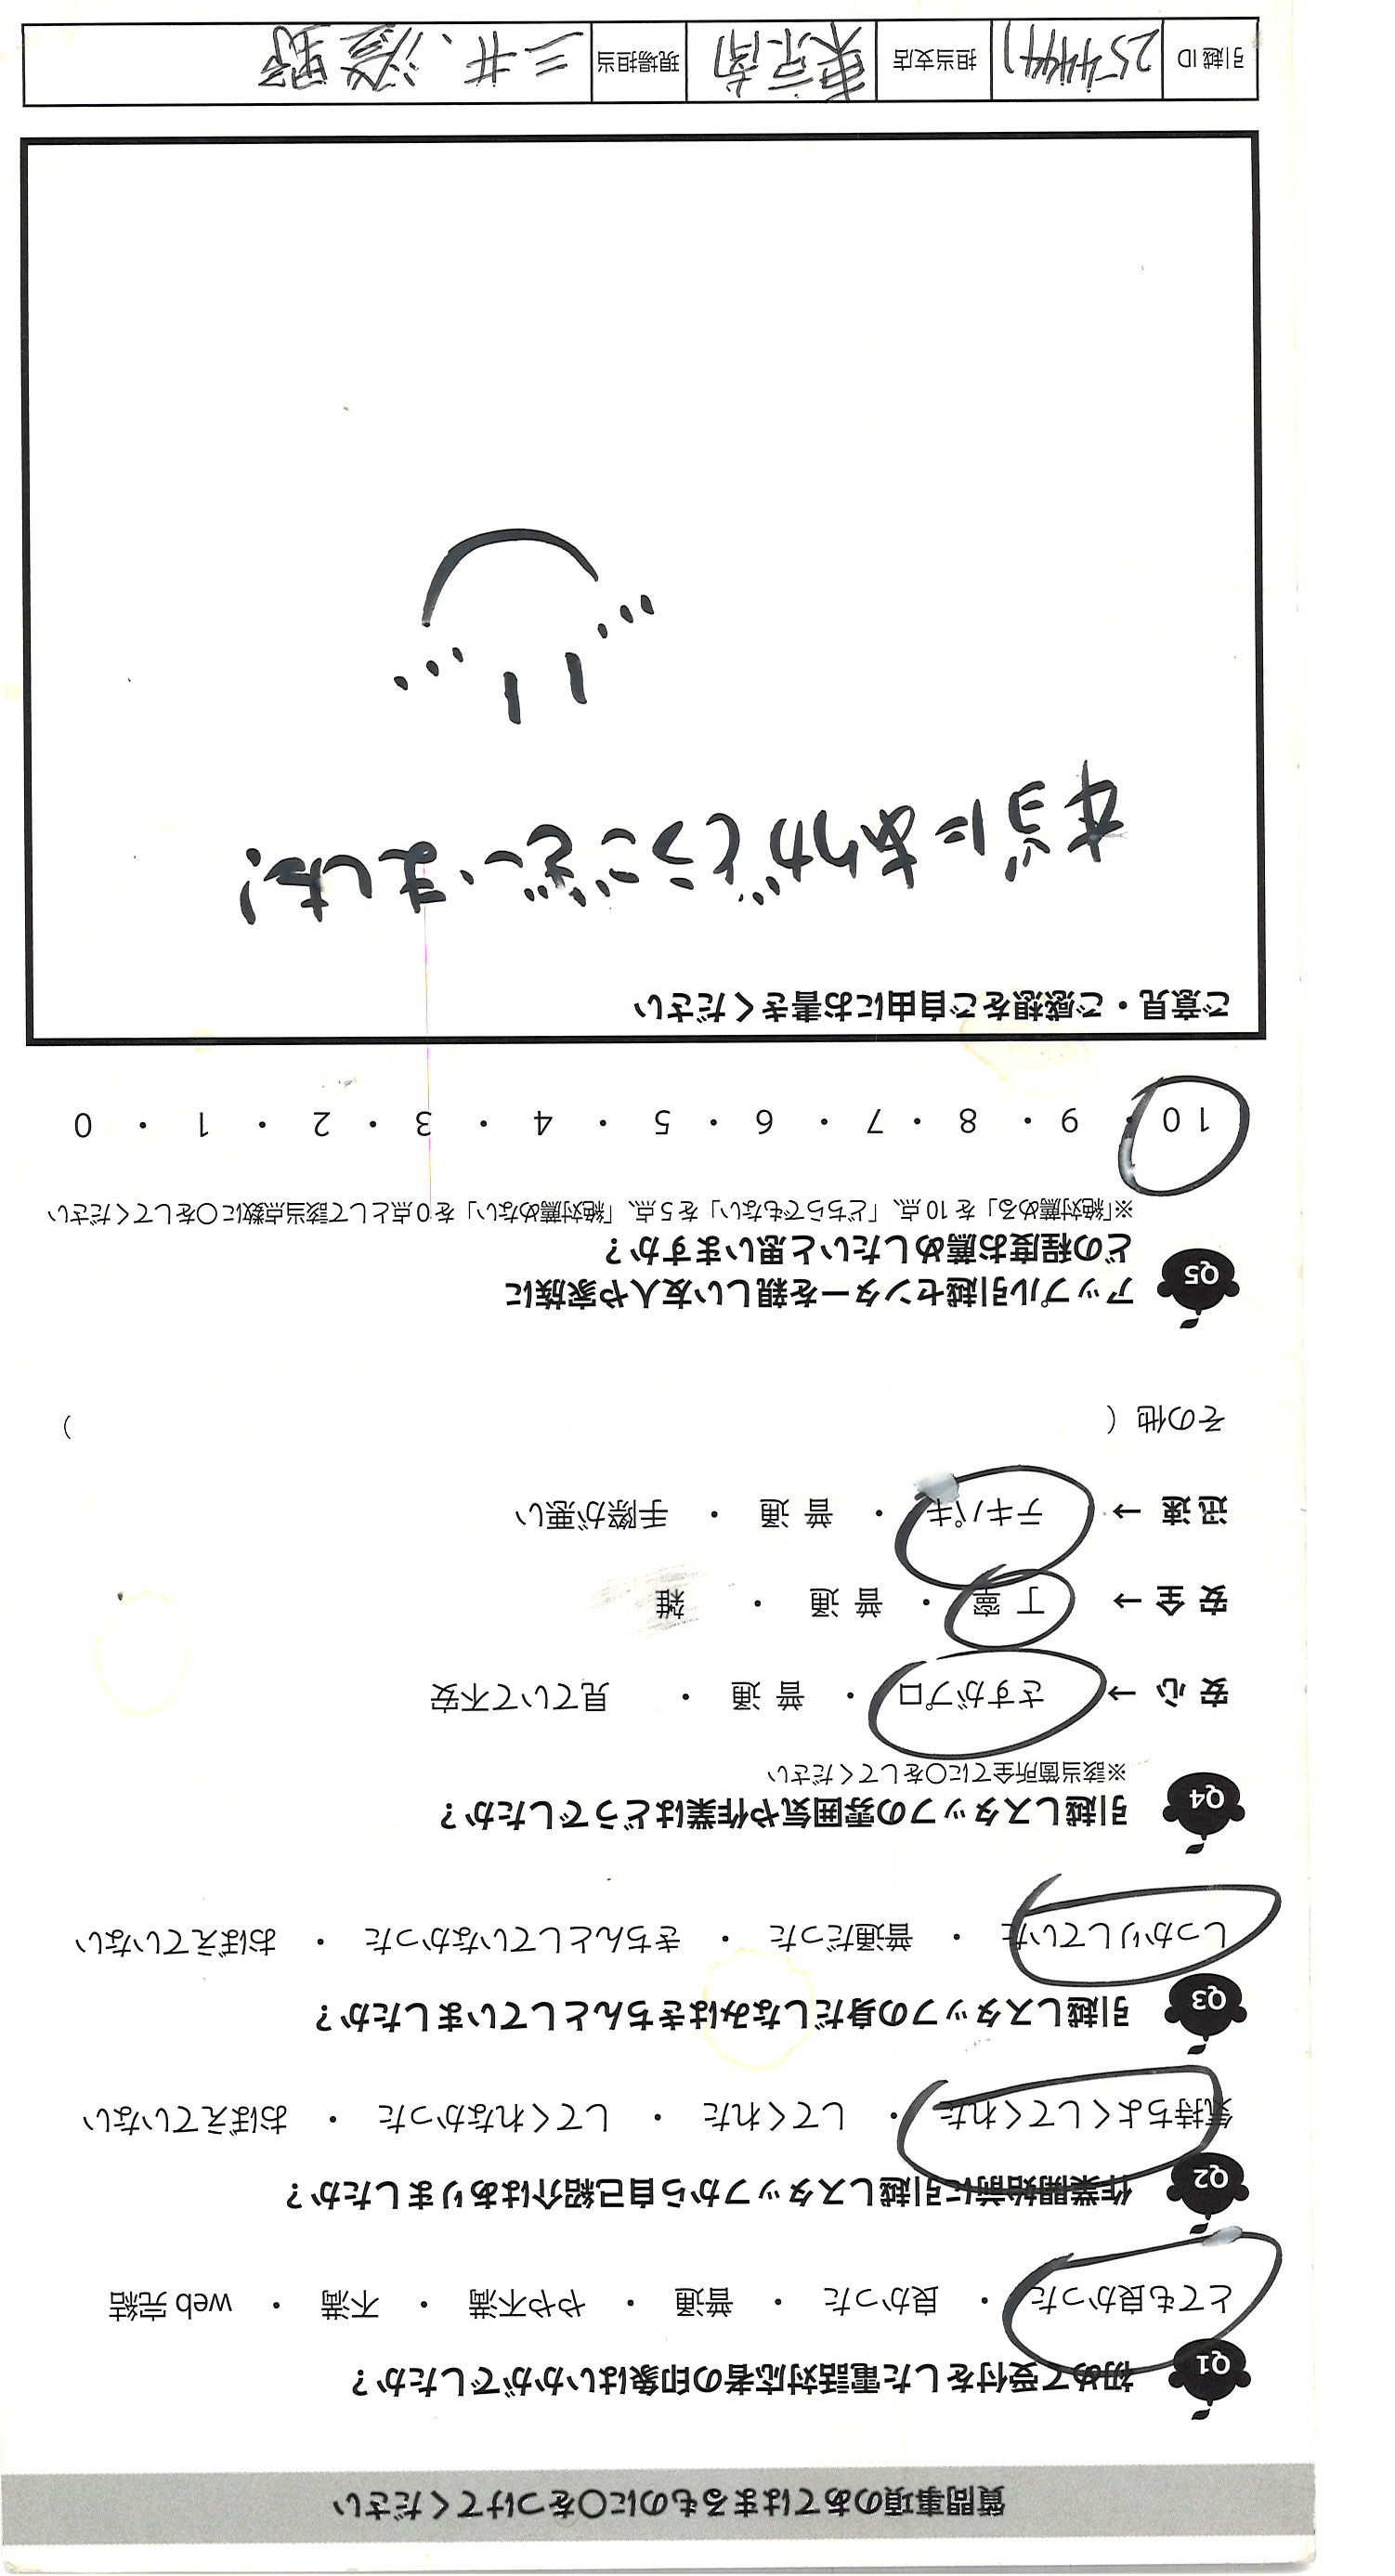 質問事項のあてはまるものに○をつけてください
Q1 初めて受付をした電話対応者の印象はいかがでしたか?
とても良かった ・ 良かった ・ 普通 ・ やや不満 ・ 不満 ・ web 完結
Q2 作業開始前に引越しスタッフから自己紹介はありましたか?
気持ちよくしてくれた ・ してくれた ・ してくれなかった ・ おぼえていない
Q3 引越しスタッフの身だしなみはきちんとしていましたか?
しっかりしていた ・ 普通だった ・ きちんとしていなかった ・ おぼえていない
Q4 引越しスタッフの雰囲気や作業はどうでしたか?
※該当箇所全てに○をしてください
安 心 → さすがプロ ・ 普 通 ・ 見ていて不安
安 全 → 丁 寧 ・ 普 通 ・ 雑
迅 速 → テキパキ ・ 普 通 ・ 手際が悪い
その他 ( )
Q5 アップル引越センターを親しい友人や家族に
どの程度お薦めしたいと思いますか?
※「絶対薦める」を 10 点、「どちらでもない」を 5 点、「絶対薦めない」を 0 点として該当点数に○をしてください
10 ・ 9 ・ 8 ・ 7 ・ 6 ・ 5 ・ 4 ・ 3 ・ 2 ・ 1 ・ 0
ご意見・ご感想をご自由にお書きください
本当にありがとうございました!
引越 ID 担当支店 東京南 現場担当 三井、